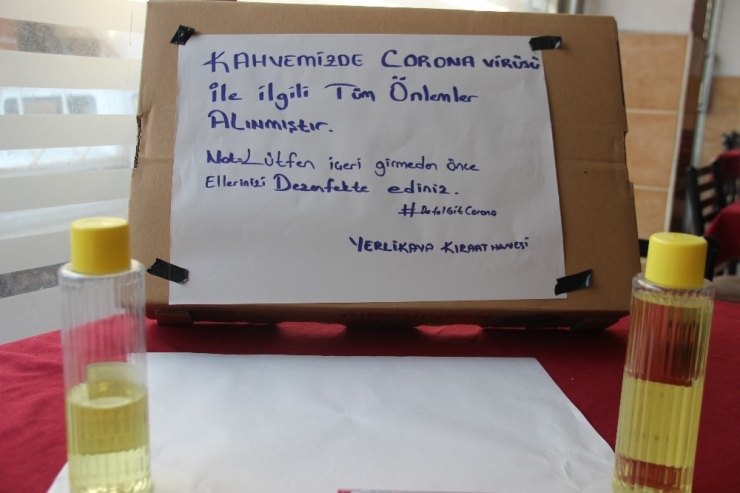 KAHVEMİZDE CORONA VİRÜSÜ
İle ilgili Tüm Önlemler
ALINMIŞTIR.
Not:Lütfen içeri girmeden önce
Ellerinizi Dezenfekte ediniz.
#DefolGitCorona
YERLİKAYA KIRAATHANESİ